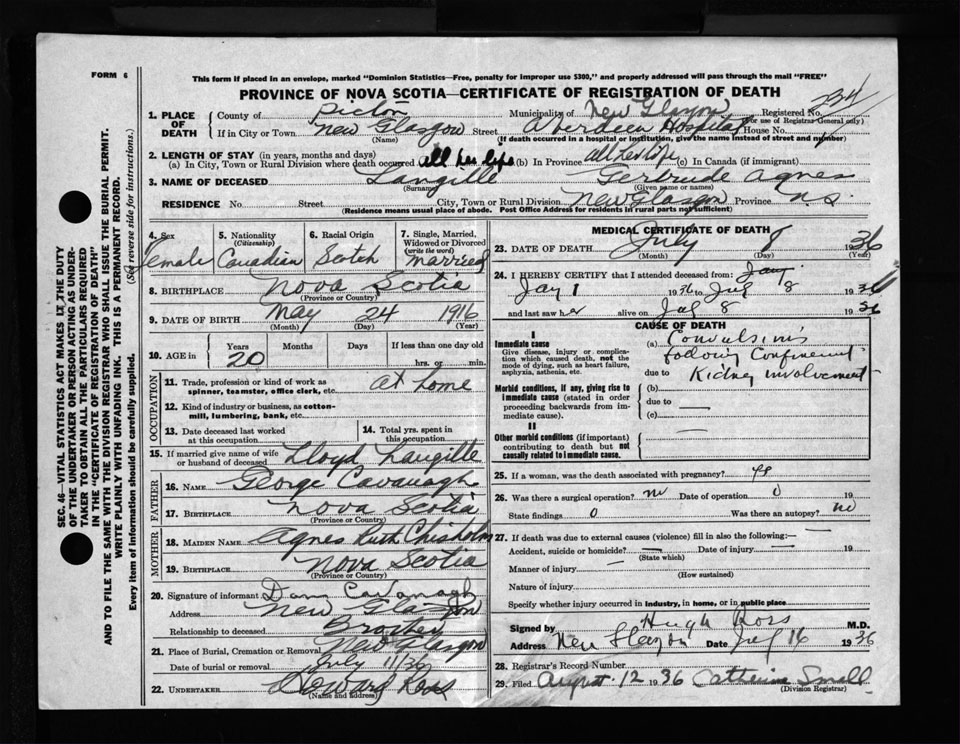 FORM 6
This form if placed in an envelope, marked "Dominion Statistics—Free, penalty for improper use $300," and properly addressed will pass through the mail "FREE"
PROVINCE OF NOVA SCOTIA—CERTIFICATE OF REGISTRATION OF DEATH
1. PLACE OF DEATH County of Pictou Municipality of New Glasgow Registered No. 234
(For use of Registrar General only)
If in City or Town New Glasgow Street Aberdeen Hospital House No.
(Name) (If death occurred in a hospital or institution, give the name instead of street and number)
2. LENGTH OF STAY (in years, months and days)
(a) In City, Town or Rural Division where death occurred all her life (b) In Province all her life (c) In Canada (if immigrant)
3. NAME OF DECEASED Langille Gertrude Agnes
(Surname) (Given name or names)
RESIDENCE No Street City, Town or Rural Division New Glasgow Province N.S.
(Residence means usual place of abode. Post Office Address for residents in rural parts not sufficient)
4. Sex 5. Nationality (Citizenship) 6. Racial Origin 7. Single, Married, Widowed or Divorced (write the word)
Female Canadian Scotch married
8. BIRTHPLACE Nova Scotia
(Province or Country)
9. DATE OF BIRTH May 24 1916
(Month) (Day) (Year)
10. AGE in Years Months Days If less than one day old
20 hrs. or min.
OCCUPATION
11. Trade, profession or kind of work as spinner, teamster, office clerk, etc. at home
12. Kind of industry or business, as cotton-mill, lumbering, bank, etc.
13. Date deceased last worked at this occupation
14. Total yrs. spent in this occupation
15. If married give name of wife or husband of deceased Lloyd Langille
FATHER
16. NAME George Cavanagh
17. BIRTHPLACE Nova Scotia
(Province or Country)
MOTHER
18. MAIDEN NAME Agnes Ruth Chisholm
19. BIRTHPLACE Nova Scotia
(Province or Country)
20. Signature of informant Cavanagh
Address New Glasgow
Relationship to deceased Brother
21. Place of Burial, Cremation or Removal New Glasgow
Date of burial or removal July 11/36
22. UNDERTAKER Howard Ross
(Name and address)
MEDICAL CERTIFICATE OF DEATH
23. DATE OF DEATH July 8 1936
(Month) (Day) (Year)
24. I HEREBY CERTIFY that I attended deceased from:
Jay 1 1936 to July 8 1936
and last saw her alive on July 8 1936
CAUSE OF DEATH
I
Immediate cause
Give disease, injury or complication which caused death, not the mode of dying, such as heart failure, asphyxia, asthenia, etc.
(a) Convulsions following Confinement
due to Kidney involvement
Morbid conditions, if any, giving rise to immediate cause (stated in order proceeding backwards from immediate cause).
(b)
due to —
(c)
II
Other morbid conditions (if important) contributing to death but not causally related to immediate cause.
25. If a woman, was the death associated with pregnancy?
26. Was there a surgical operation? no Date of operation 0 19
State findings 0 Was there an autopsy? no
27. If death was due to external causes (violence) fill in also the following:— —
Accident, suicide or homicide? — Date of injury — 19
(State which)
Manner of injury —
(How sustained)
Nature of injury
Specify whether injury occurred in industry, in home, or in public place
Signed by Hugh Ross M.D.
Address New Glasgow Date July 16 1936
28. Registrar's Record Number
29. Filed August 12 1936 Catherine Small
(Division Registrar)
SEC. 46—VITAL STATISTICS ACT MAKES IT THE DUTY
OF THE UNDERTAKER OR PERSON ACTING AS UNDER-
TAKER TO OBTAIN ALL THE PARTICULARS REQUIRED
IN THE "CERTIFICATE OF REGISTRATION OF DEATH"
AND TO FILE THE SAME WITH THE DIVISION REGISTRAR WHO SHALL ISSUE THE BURIAL PERMIT.
WRITE PLAINLY WITH UNFADING INK. THIS IS A PERMANENT RECORD.
Every item of information should be carefully supplied. (See reverse side for instructions.)